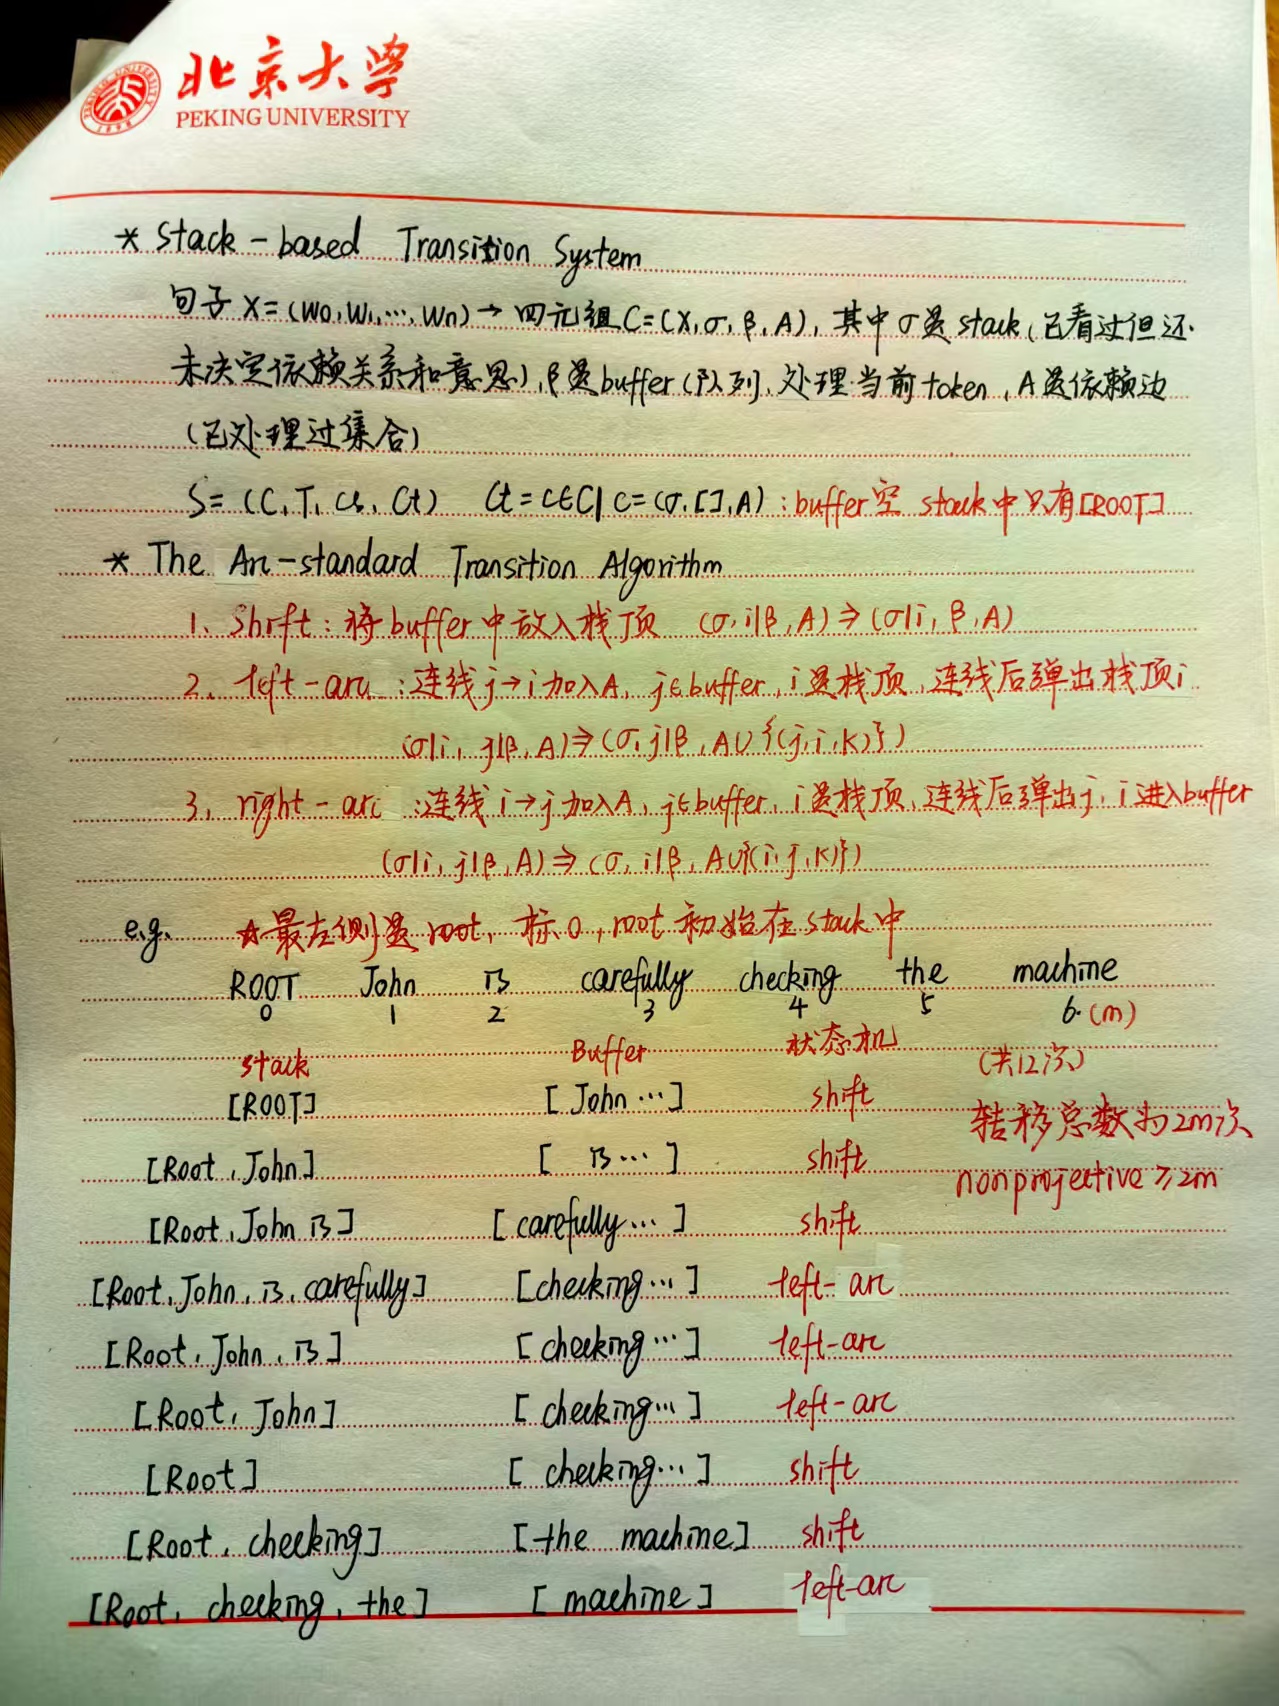 北京大学
PEKING UNIVERSITY
* Stack-based Transition System
句子 X=(w0,w1,…,wn)→ 四元组 C=(X,σ,β,A), 其中σ是stack(已看过但还
未决定依赖关系和意思),β是buffer(队列,处理当前token,A是依赖边
(已处理过集合)
S=(C,T,Cs,Ct) Ct=C∈C|c=(σ,[],A):buffer空 stack中只有[ROOT]
* The Arc-standard Transition Algorithm
1、Shift:将buffer中放入栈顶 (σ,i|β,A)⇒(σ|i,β,A)
2、left-arc:连线j→i加入A, j∈buffer,i是栈顶,连线后弹出栈顶i
(σ|i,j|β,A)⇒(σ,j|β,A∪{(j,i,k)})
3、right-arc:连线i→j加入A,j∈buffer,i是栈顶,连线后弹出j,i进入buffer
(σ|i,j|β,A)⇒(σ,i|β,A∪{(i,j,k)})
e.g. ☆最左侧是root,标0,root初始在stack中
ROOT John is carefully checking the machine
0 1 2 3 4 5 6.(m)
stack Buffer 状态机 (共12次)
[ROOT] [John…] shift
转移总数为2m次
[Root,John] [is…] shift
nonprojective ≥2m
[Root,John is] [carefully…] shift
[Root,John,is,carefully] [checking…] left-arc
[Root,John,is] [checking…] left-arc
[Root,John] [checking…] left-arc
[Root] [checking…] shift
[Root,checking] [the machine] shift
[Root,checking,the] [machine] left-arc